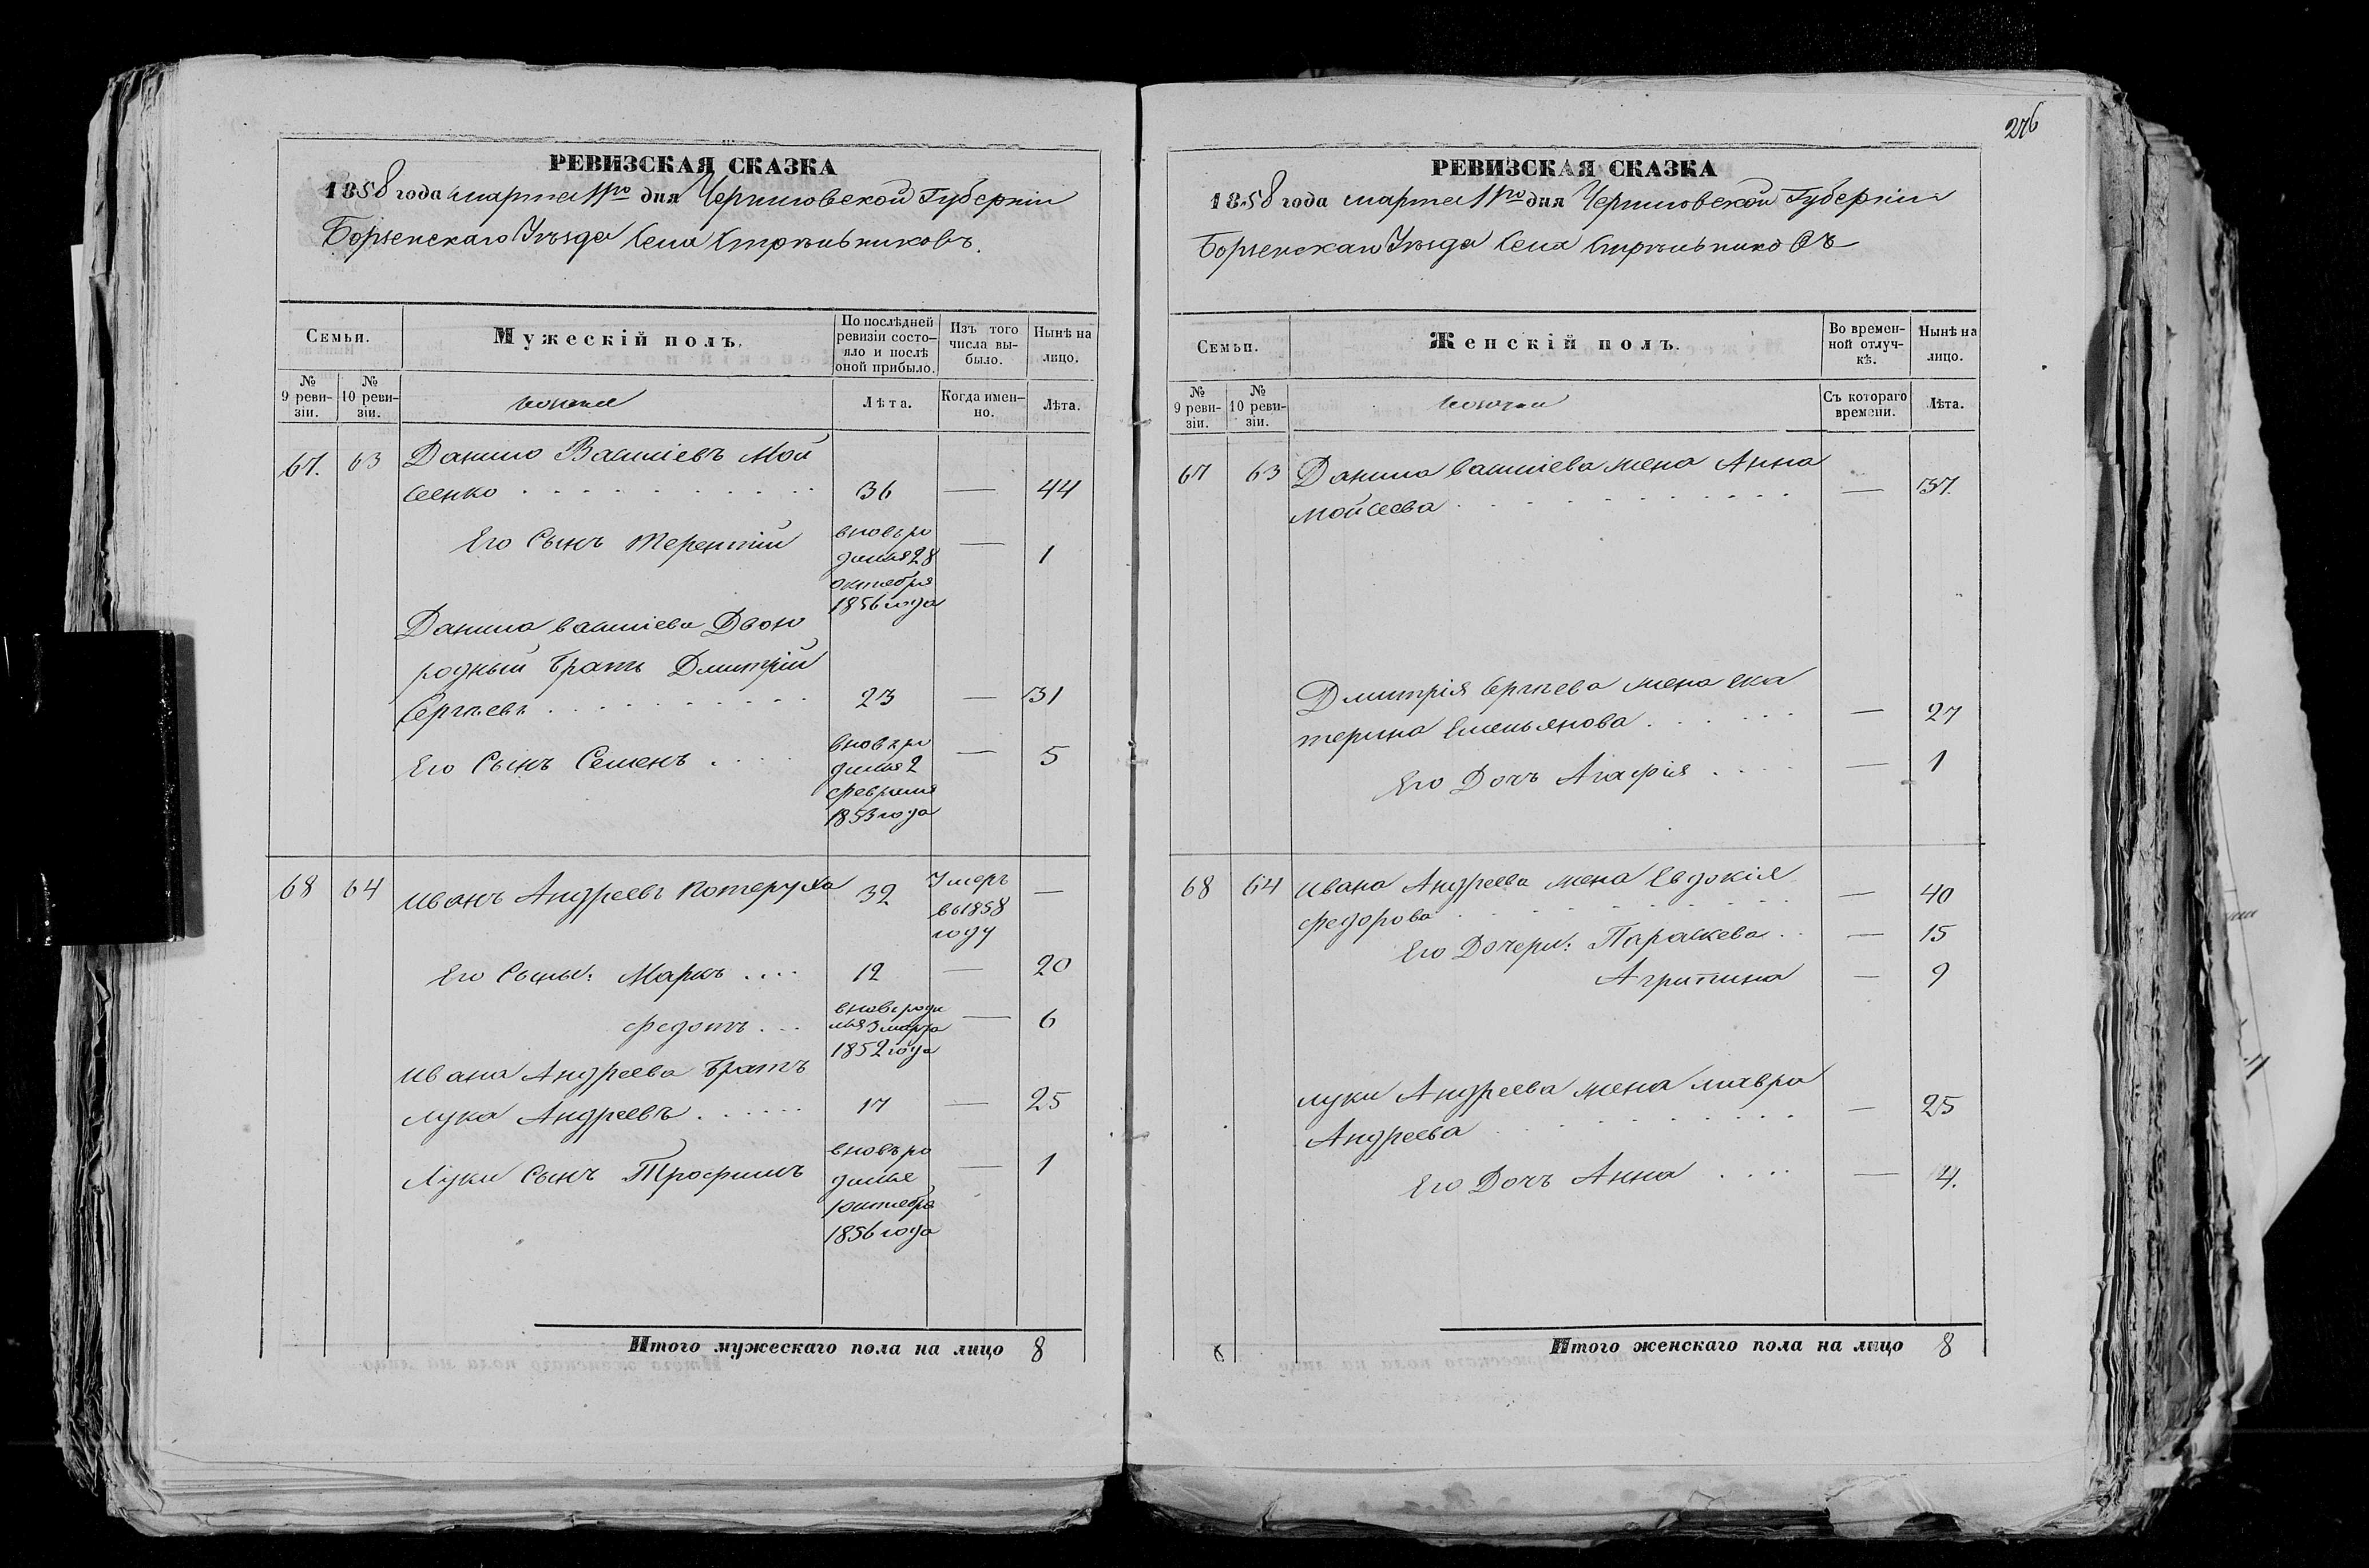 276
РЕВИЗСКАЯ СКАЗКА
1858 года марта 11го дня Черниговской Губерніи
Борзенскаго Уѣзда Села Стрѣльниковъ.
Семьи.
Мужескій полъ.
По послѣдней ревизіи состо-
яло и послѣ
оной прибыло.
Изъ того
числа вы-
было.
Нынѣ на
лицо.
№
9 реви-
зіи.
№
10 реви-
зіи.
Лѣта.
Когда имен-
но.
Лѣта.
67. 63 Данило Василіевъ Мой
сеенко 36 — 44
Его Сынъ Терентій вновь ро
дился 28 — 1
октября
1856 года
Данила Василіева Двою
родный братъ Дмитрій
Сергѣевъ 23 — 31
Его Сынъ Семенъ вновь ро
дился 2 — 5
февраля
1853 года
68 64 Иванъ Андреевъ Потеруха 32 Умеръ —
въ 1858
году
Его Сыны: Марко 12 — 20
Федотъ вновь роди
лся 3 марта — 6
1852 года
Ивана Андреева братъ
Лука Андреевъ 17 — 25
Луки Сынъ Трофимъ вновь ро
дился — 1
1 октября
1856 года
Итого мужескаго пола на лицо 8
РЕВИЗСКАЯ СКАЗКА
1858 года марта 11го дня Черниговской Губерніи
Борзенскаго Уѣзда Села Стрѣльниковъ
Семьи.
Женскій полъ.
Во времен-
ной отлуч-
кѣ.
Нынѣ на
лицо.
№
9 реви-
зіи.
№
10 реви-
зіи.
Съ котораго
времени.
Лѣта.
67 63 Данила Василіева жена Анна
Мойсеева — 37.
Дмитрія Сергѣева жена Ека
терина Емельянова — 27
Его Дочь Агафія — 1
68 64 Ивана Андреева жена Евдокія
Федорова — 40
Его Дочери: Параскева — 15
Агрипина — 9
Луки Андреева жена Мавра
Андреева — 25
Его Дочь Анна — 4.
Итого женскаго пола на лицо 8